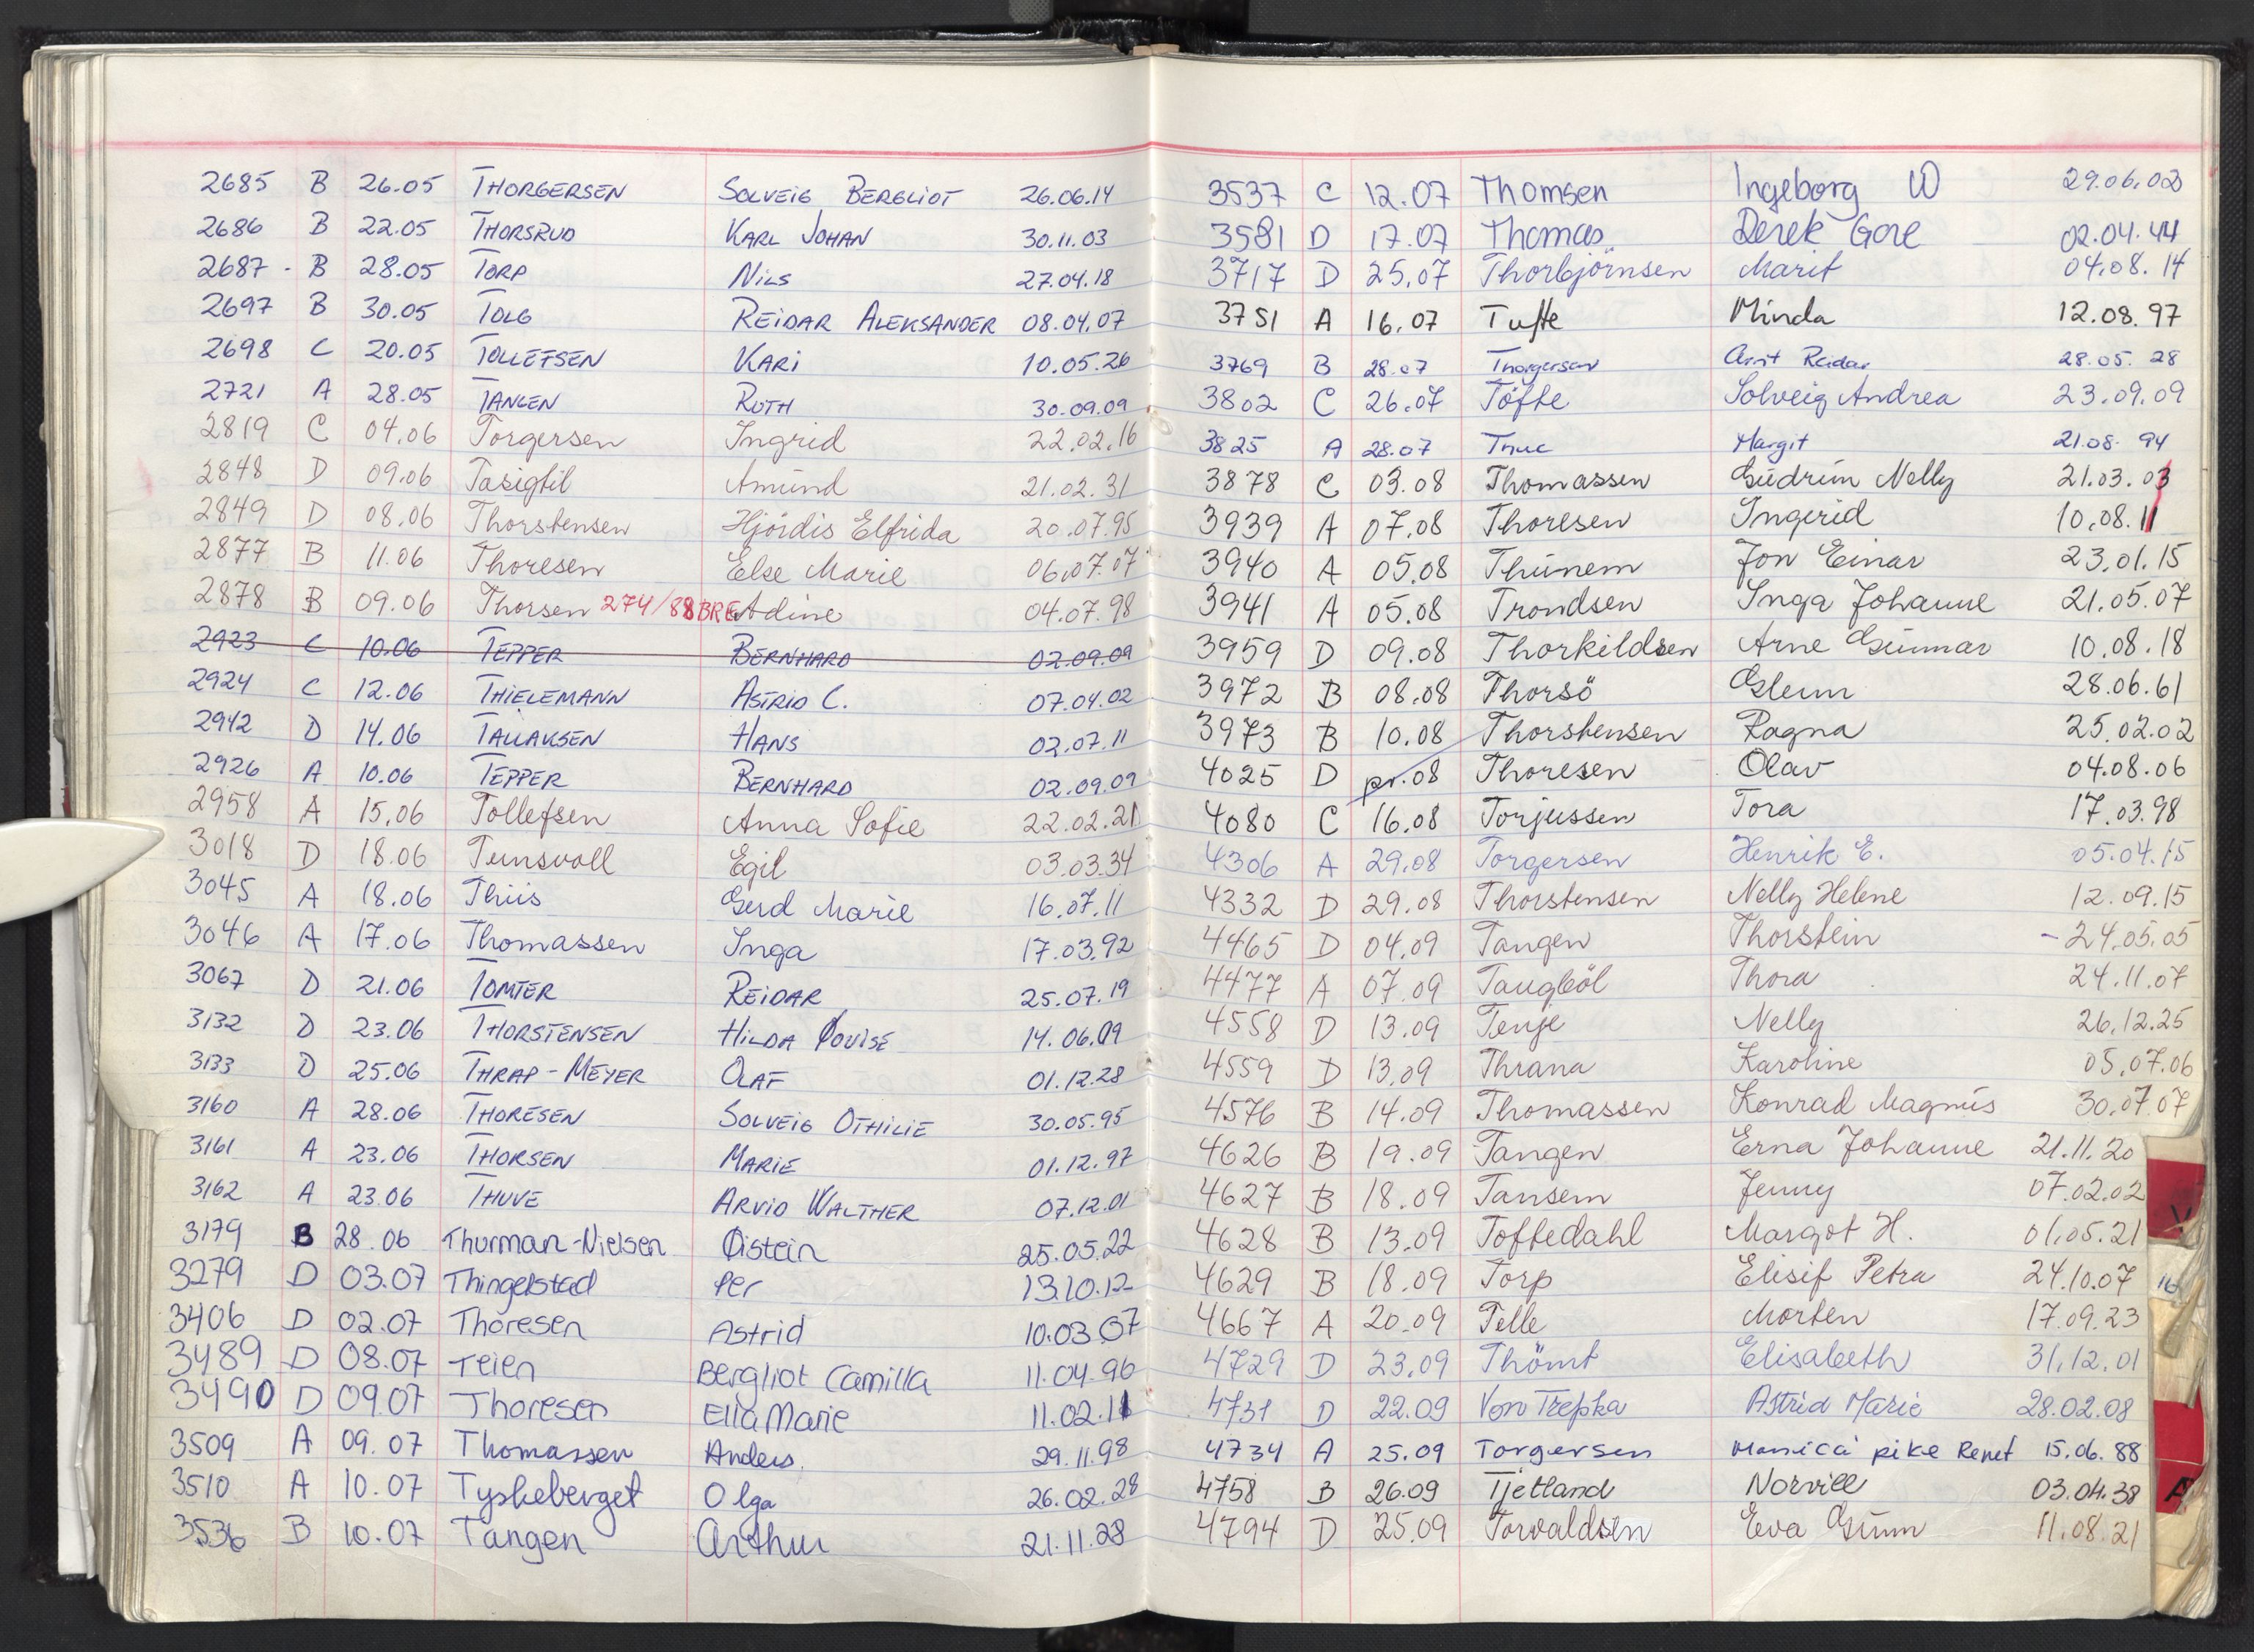 2685 B 26.05 THORGERSEN SOLVEIG BERGLIOT 26.06.14
2686 B 22.05 THORSRUD KARL JOHAN 30.11.03
2687 - B 28.05 TORP NILS 27.04.18
2697 B 30.05 TOLG REIDAR ALEKSANDER 08.04.07
2698 C 20.05 TOLLEFSEN KARI 10.05.26
2721 A 28.05 TANGEN RUTH 30.09.09
2819 C 04.06 Torgersen Ingrid 22.02.16
2848 D 09.06 Tasigtil Amund 21.02.31
2849 D 08.06 Thorstensen Hjördis Elfrida 20.07.95
2877 B 11.06 Thoresen Else Marie 06.07.07
2878 B 09.06 Thorsen 274/88 BRE Adine 04.07.98
2923 C 10.06 TEPPER BERNHARD 02.09.09
2924 C 12.06 THIELEMANN ASTRID C. 07.04.02
2942 D 14.06 TALLAKSEN HANS 02.07.11
2926 A 10.06 TEPPER BERNHARD 02.09.09
2958 A 15.06 Tollefsen Anna Sofie 22.02.21
3018 D 18.06 Tunsvoll Egil 03.03.34
3045 A 18.06 Thiis Gerd Marie 16.07.11
3046 A 17.06 Thomassen Inga 17.03.92
3067 D 21.06 TOMTER REIDAR 25.07.19
3132 D 23.06 THORSTENSEN HILDA LOUISE 14.06.09
3133 D 25.06 THRAP-MEYER OLAF 01.12.28
3160 A 28.06 THORESEN SOLVEIG OTHILIE 30.05.95
3161 A 23.06 THORSEN MARIE 01.12.97
3162 A 23.06 THUVE ARVID WALTHER 07.12.01
3179 B 28.06 Thurman-Nielsen Øistein 25.05.22
3279 D 03.07 Thingelstad Per 13.10.12
3406 D 02.07 Thoresen Astrid 10.03.07
3489 D 08.07 Teien Bergliot Camilla 11.04.96
3490 D 09.07 Thoresen Ella Marie 11.02.11
3509 A 09.07 Thomassen Anders 29.11.98
3510 A 10.07 Tyskeberget Olga 26.02.28
3536 B 10.07 Tangen Arthur 21.11.28
3537 C 12.07 Thomsen Ingeborg W 29.06.02
3581 D 17.07 Thomas Derek Gore 02.04.44
3717 D 25.07 Thorbjörnsen Marit 04.08.14
3751 A 16.07 Tufte Minda 12.08.97
3769 B 28.07 Thorgersen Arnt Reidar 28.05.28
3802 C 26.07 Töfte Solveig Andrea 23.09.09
3825 A 28.07 Margit 21.08.94
3878 C 03.08 Thomassen Gudrun Nelly 21.03.03
3939 A 07.08 Thoresen Ingerid 10.08.11
3940 A 05.08 Thunem Jon Einar 23.01.15
3941 A 05.08 Trondsen Inga Johanne 21.05.07
3959 D 09.08 Thorkildsen Arne Gunnar 10.08.18
3972 B 08.08 Thorsö Glenn 28.06.61
3973 B 10.08 Thorstensen Ragna 25.02.02
4025 D pr.08 Thoresen Olav 04.08.06
4080 C 16.08 Torjussen Tora 17.03.98
4306 A 29.08 Torgersen Henrik E. 05.04.15
4332 D 29.08 Thorstensen Nelly Helene 12.09.15
4465 D 04.09 Tangen Thorstein - 24.05.05
4477 A 07.09 Taugböl Thora 24.11.07
4558 D 13.09 Tenje Nelly 26.12.25
4559 D 13.09 Thrana Karoline 05.07.06
4576 B 14.09 Thomassen Konrad Magnus 30.07.07
4626 B 19.09 Tangen Erna Johanne 21.11.20
4627 B 18.09 Tansem Jenny 07.02.02
4628 B 13.09 Toftedahl Margot H. 01.05.21
4629 B 18.09 Torp Elisif Petra 24.10.07
4667 A 20.09 Telle Morten 17.09.23
4729 D 23.09 Thömt Elisabeth 31.12.01
4731 D 22.09 Von Trepka Astrid Marie 28.02.08
4734 A 25.09 Torgersen Monica pike Renet 15.06.88
4758 B 26.09 Tjetland Norvill 03.04.38
4794 D 25.09 Torvaldsen Eva Gunn 11.08.21
V
16
A